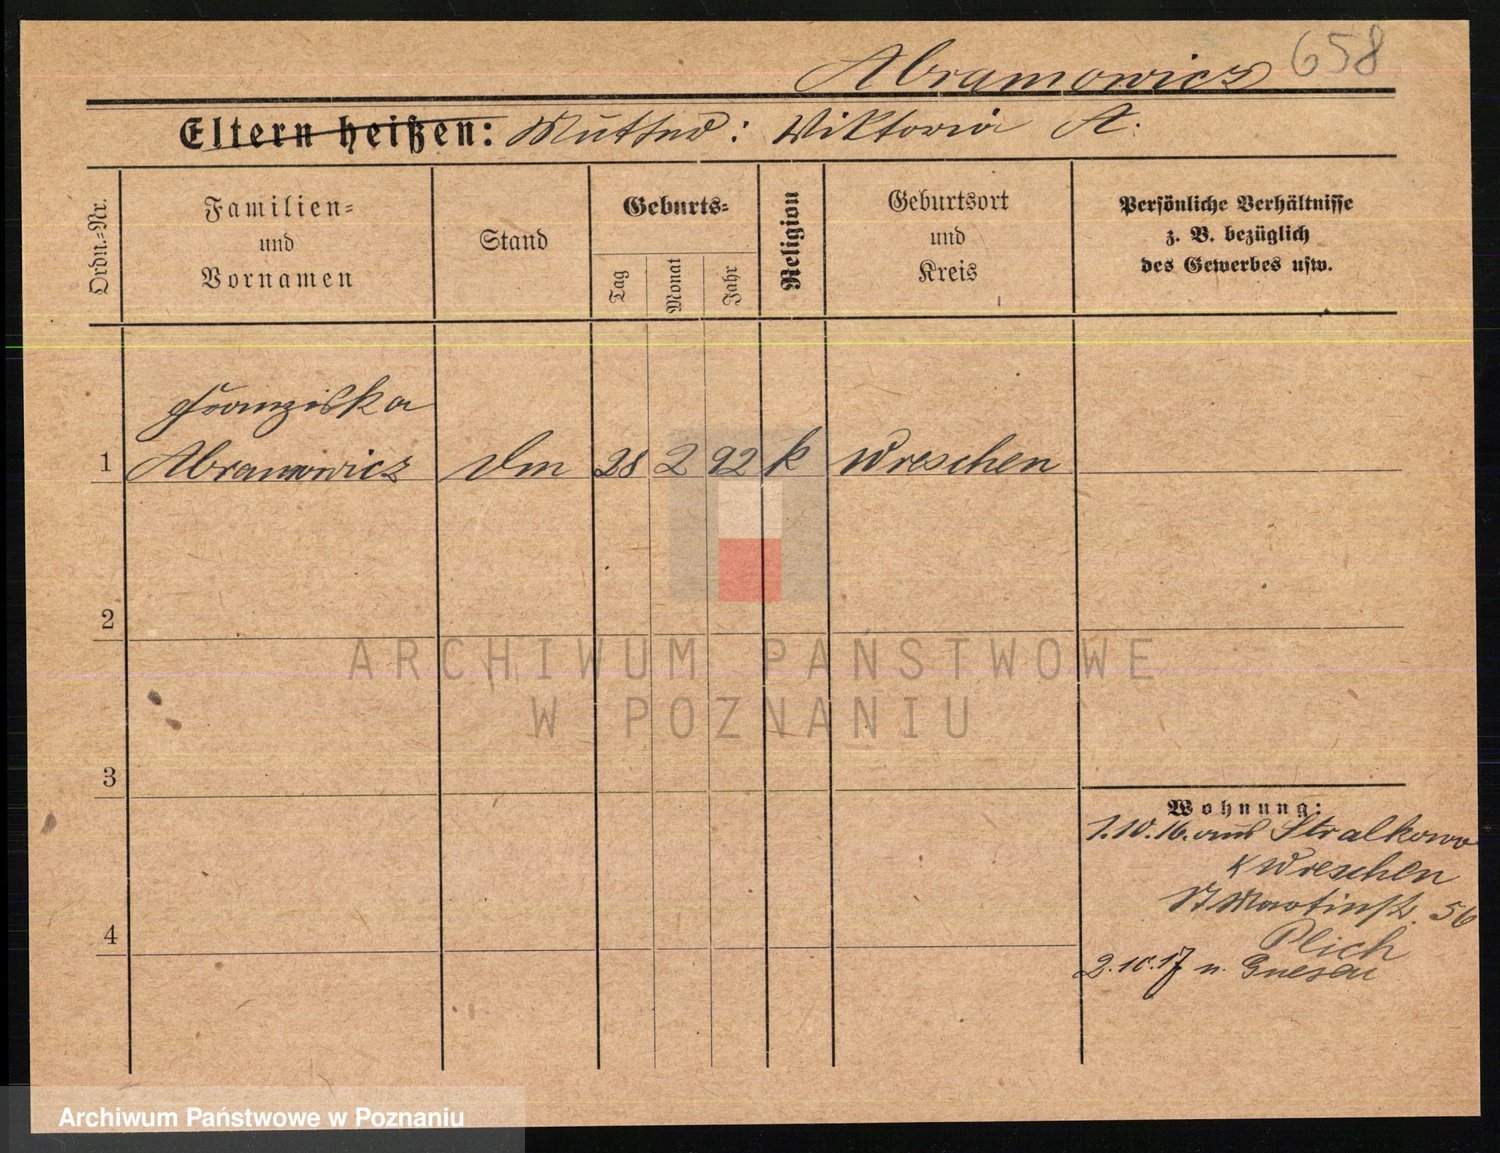 Abramowicz 658
Eltern heißen: Mutter: Wiktoria A.
Ordn.=Nr.
Familien=
und
Vornamen
Stand
Geburts=
Tag
Monat
Jahr
Religion
Geburtsort
und
Kreis
Persönliche Verhältnisse
z. B. bezüglich
des Gewerbes usw.
Franziska
1 Abramowicz 28 2 92 k Wreschen
2
3
4
Wohnung:
1.10.16. aus Stralkowo
K Wreschen
St Martinstr. 56
Plich
2.10.17 n. Gnesen
ARCHIWUM PAŃSTWOWE
W POZNANIU
Archiwum Państwowe w Poznaniu